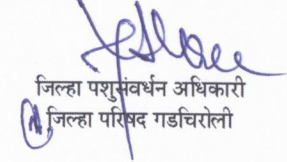 जिल्हा पशुसंवर्धन अधिकारी
जिल्हा परिषद गडचिरोली